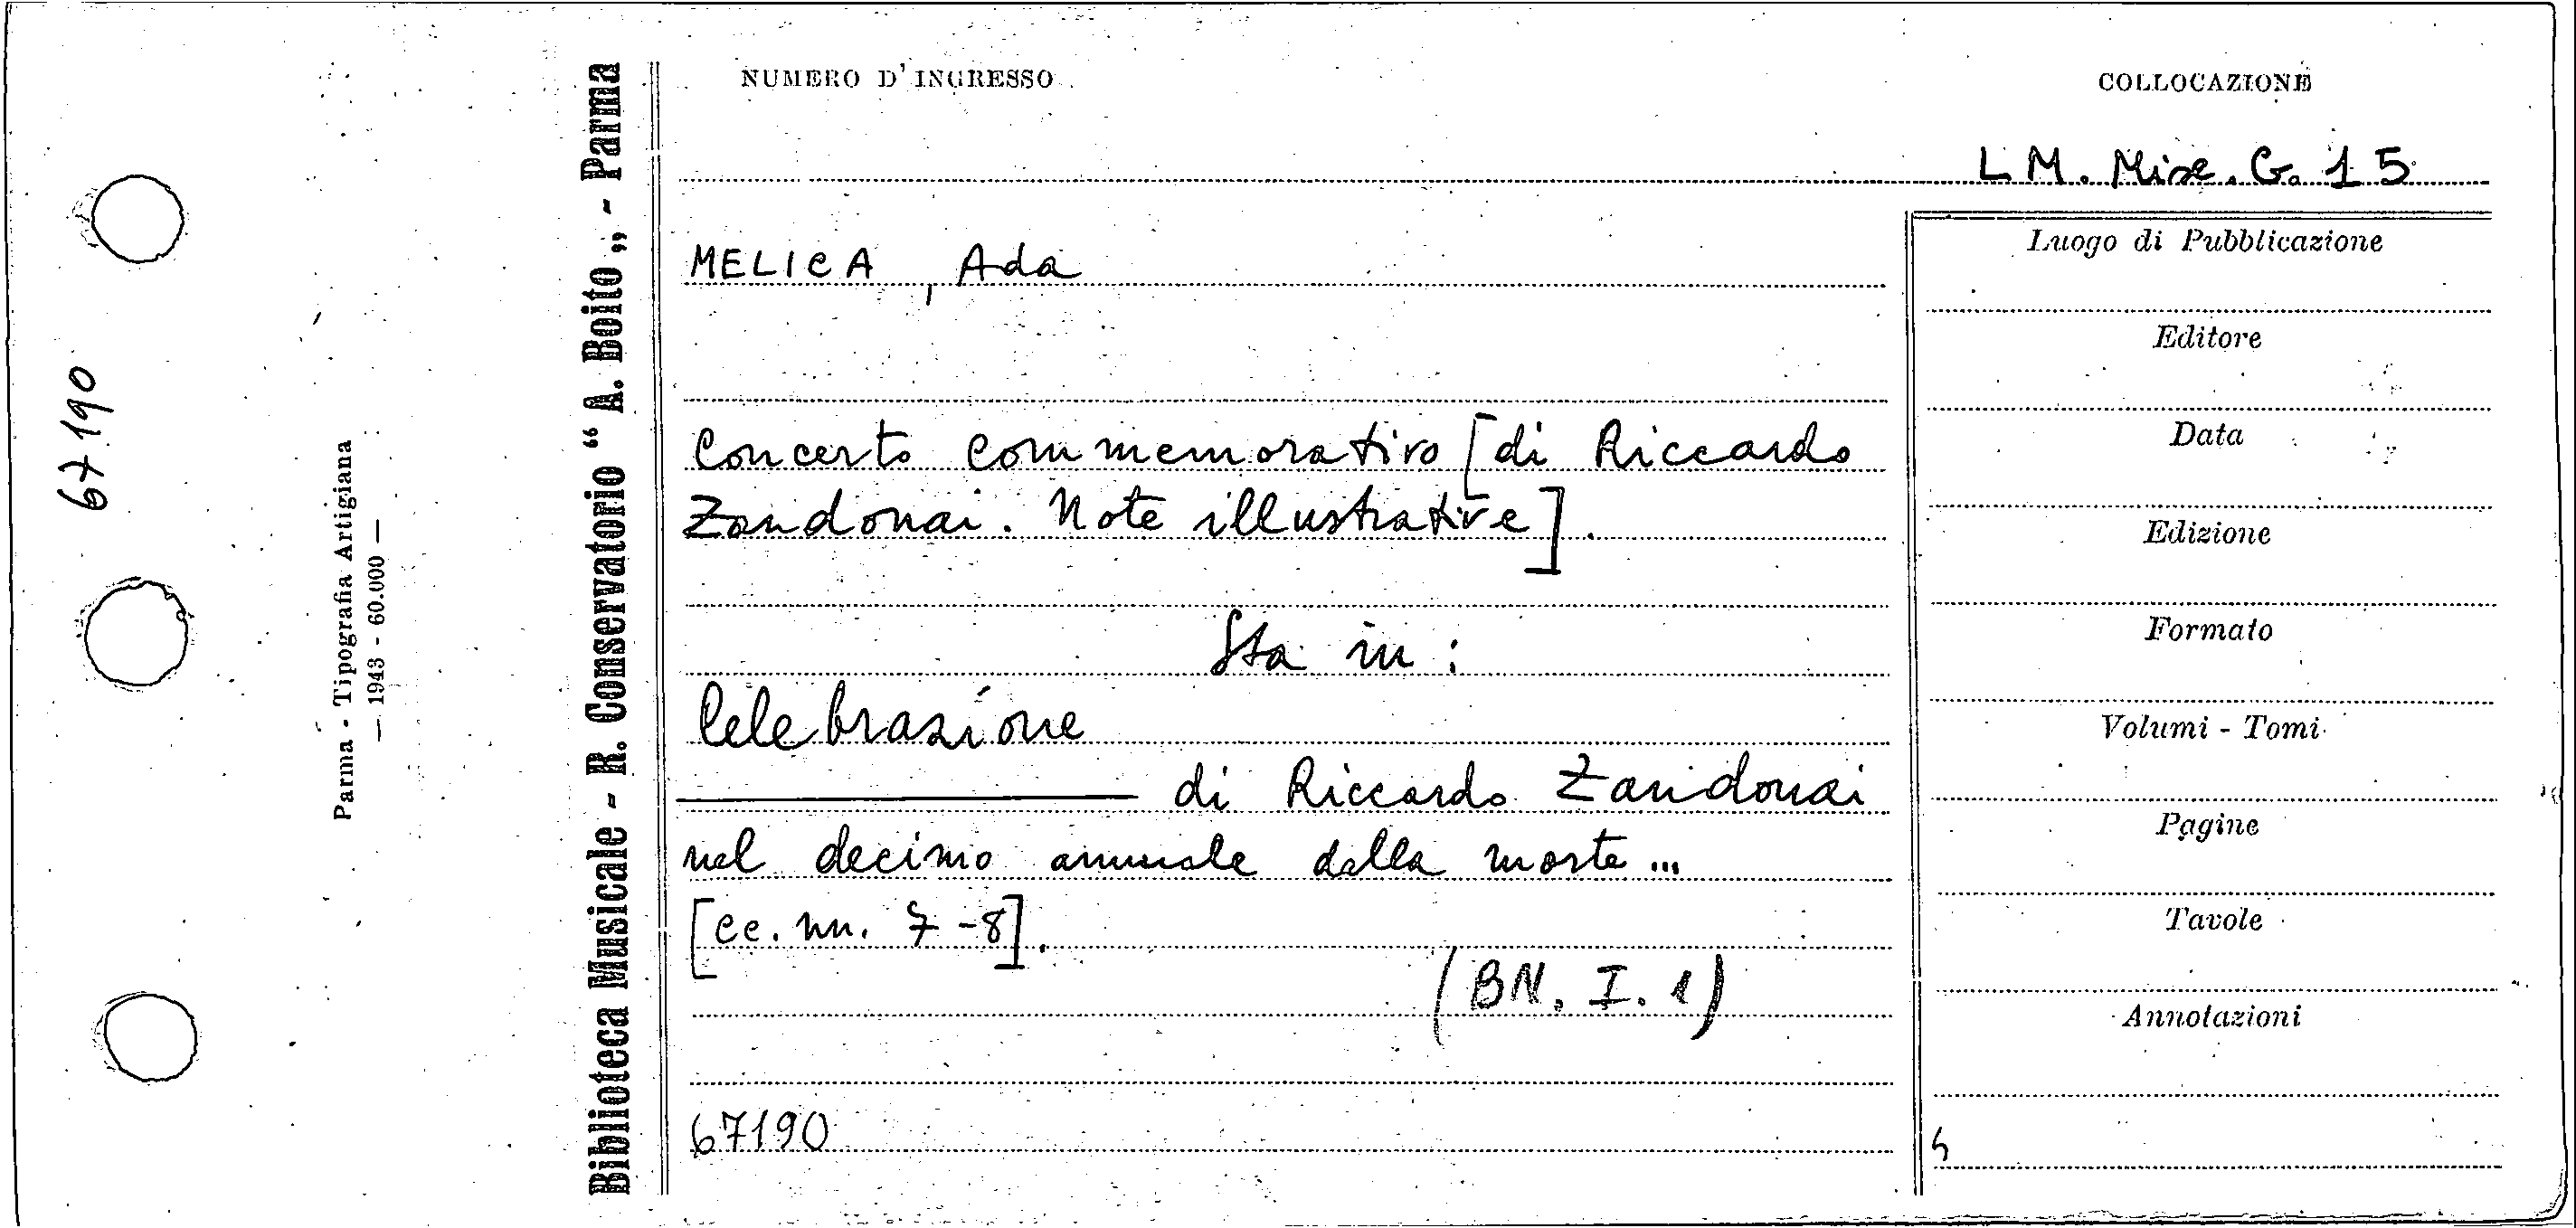 67190
Parma - Tipografia Artigiana
— 1943 - 60.000 —
Biblioteca Musicale - R. Conservatorio “A. Boito„ - Parma
NUMERO D'INGRESSO
COLLOCAZIONE
L M. Misc. G. 15
MELICA, Ada
Concerto commemorativo [di Riccardo
Zandonai. Note illustrative].
Sta in:
Celebrazione
——— di Riccardo Zandonai
nel decimo annuale dalla morte...
[cc. nn. 7-8].
(BN. I. 1)
67190
Luogo di Pubblicazione
Editore
Data
Edizione
Formato
Volumi - Tomi
Pagine
Tavole
Annotazioni